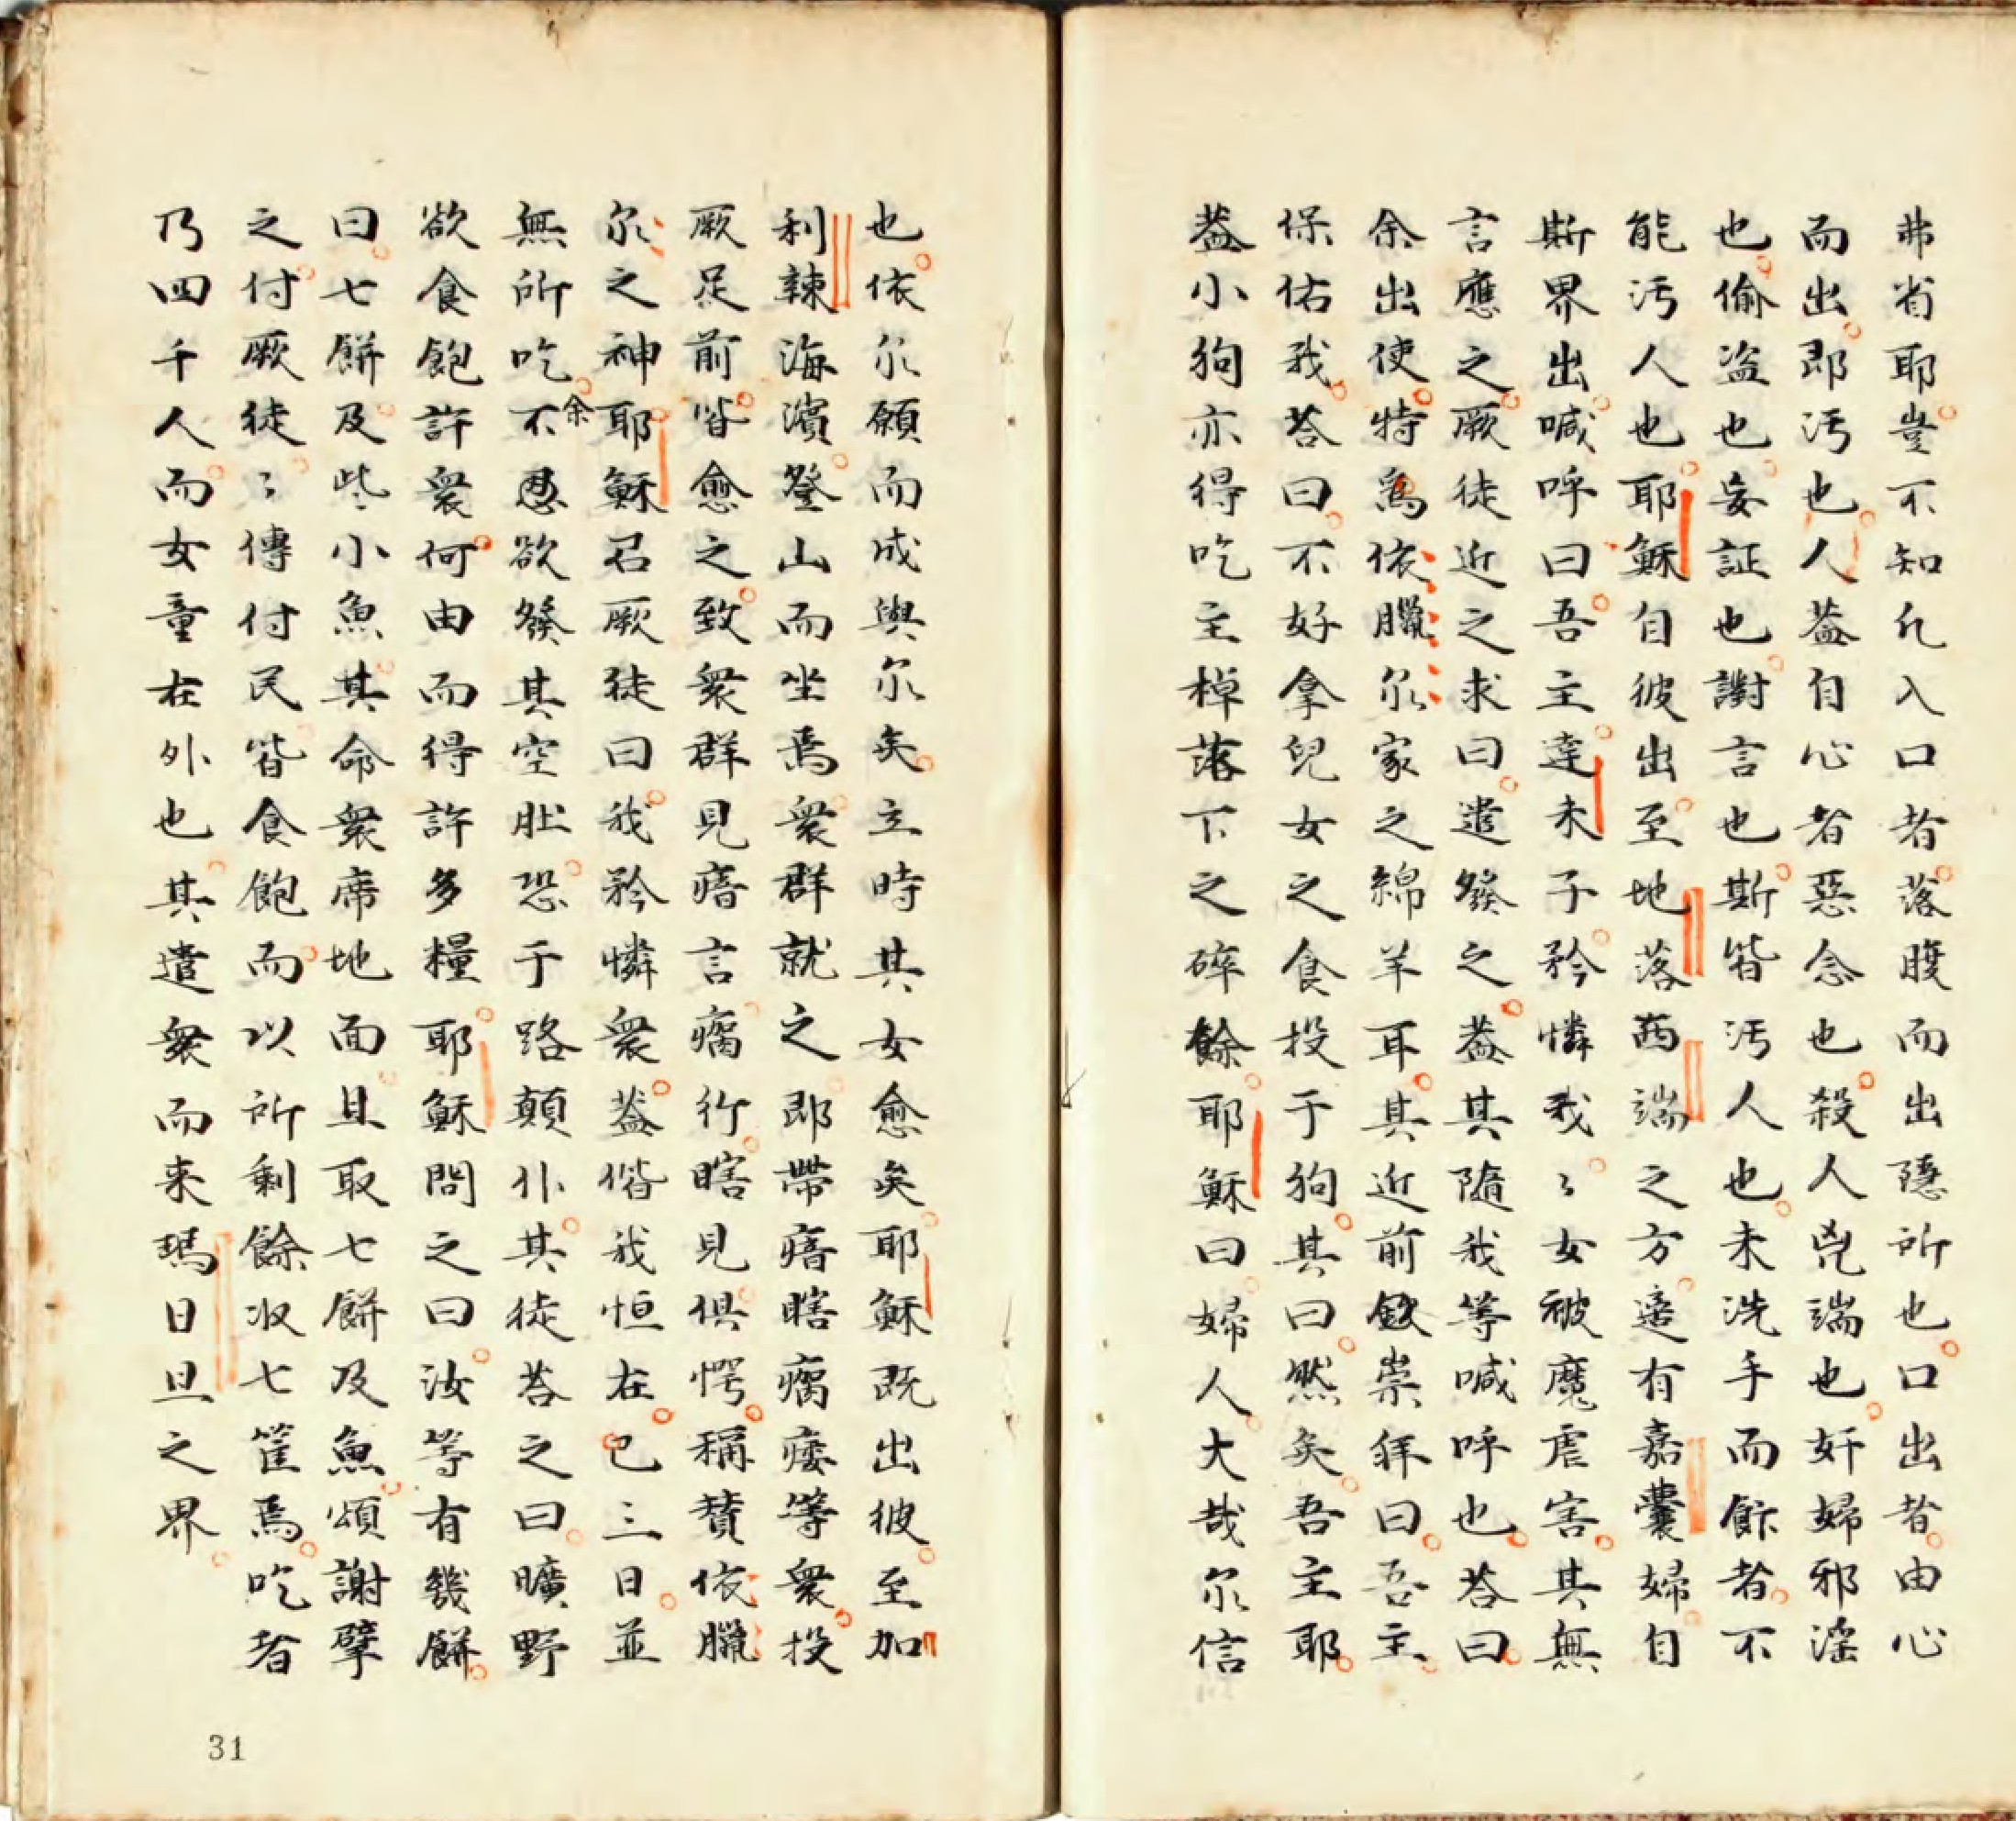 弗省耶豈不知凢入口者落腹而出隱所也口出者由心
而出即污也人葢自心者惡念也殺人兇端也奸婦邪淫
也偷盗也妄証也謝言也斯皆污人也未洗手而餙者不
能污人也耶穌自彼出至地落西端之方適有嘉囊婦自
斯界出喊呼曰吾主達未子矜憐我〻女被魔虐害其無
言應之厥徒近之求曰遣發之葢其隨我等喊呼也荅曰
余出使特爲依臘尔家之綿羊耳其近前欽崇拜曰吾主
保佑我荅曰不好拿兒女之食投于狗其曰然矣吾主耶
葢小狗亦得吃主棹落下之碎餘耶穌曰婦人大哉尔信
也依尔願而成與尔矣立時其女愈矣耶穌既出彼至加
利辣海濱登山而坐焉衆群就之即帶瘖瞎瘸痿等衆投
厥足前皆愈之致衆群見瘖言瘸行瞎見俱愕稱賛依臘
尔之神耶穌召厥徒曰我矜憐衆葢偕我恒在已三日並
無所吃余不忍欲發其空肚恐于路顛仆其徒荅之曰曠野
欲食飽許衆何由而得許多糧耶穌問之曰汝等有幾餅
曰七餅及些小魚其命衆席地面且取七餅及魚頌謝擘
之付厥徒〻傳付民皆食飽而以所剩餘收七筐焉吃者
乃四千人而女童在外也其遣衆而来瑪日旦之界
31